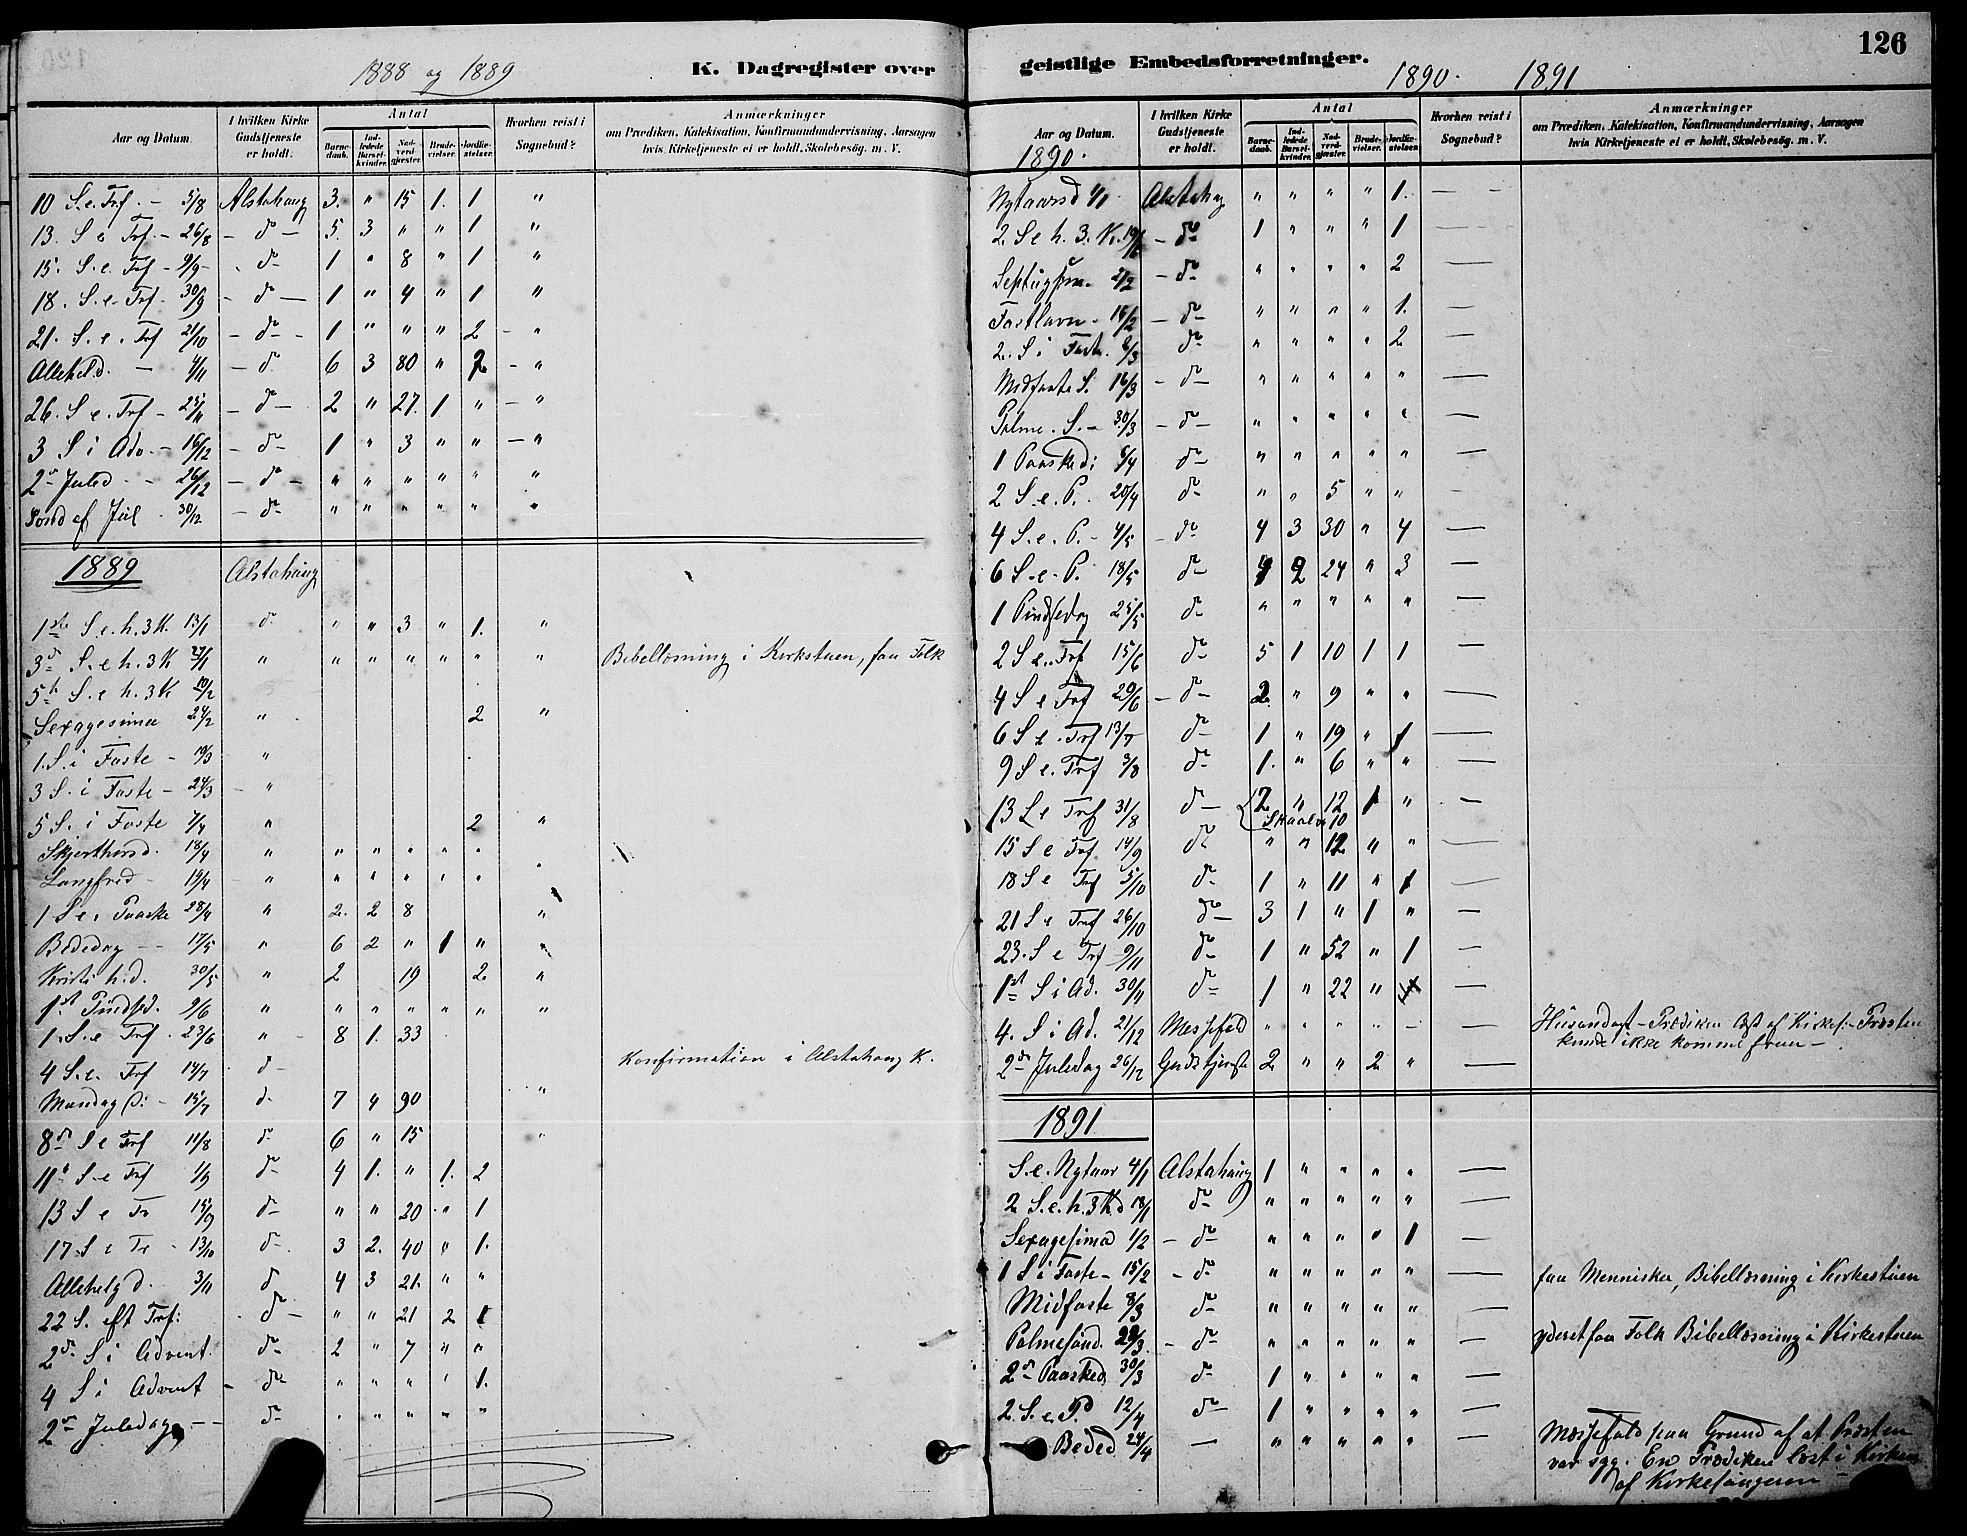 126
1888 og 1889
K. Dagregister over
Aar og Datum.
I hvilken Kirke Gudstjeneste er holdt.
Antal
Barnedaab.
Indledede Barselkvinder.
Nadverdgjæster.
Brudevielser.
Jordfæstelser.
Hvorhen reist i Sognebud?
Anmærkninger
om Prædiken, Katekisation, Konfirmandundervisning, Aarsagen
hvis Kirketjeneste ei er holdt, Skolebesøg. m. V.
10 S. e. Trf. - 5/8 Alstahaug 3. " 15 1. 1 "
13. S e Trf. - 26/8 - do - 5. 3 " " 1 "
15. S. e. Trf - 9/9 - - do - 1 " 8 " 1 "
18. S. e. Trf. 30/9 - do - 1 " 4 " 1 "
21. S. e. Trf 21/10 - do - 1 " " " 2 - "
Alleheld. - 4/11 - do 6 3 80 " 2 - "
26. S. e. Trf - 25/11 - do - 2 " 27. 1 " - "
3 S i Adv. - 16/12 - do - 1 " 3 " " - "
2n Juled - - 26/12 - do - " " " " " "
Sønd ef Jul - 30/12 - do - " " " " " "
1889 Alstahaug
1ste S. e. h. 3 K. 13/1 do " " 3 " 1. "
3d S. e h. 3 K 27/1 " " " " " " " Bibellæsning i Kirkstuen, faa Folk
5t S. e h. 3 K 10/2
Sexagesima 24/2 " 2 "
1. S. i Faste - 10/3 "
3 S. i Faste - 24/3 - "
5 S. i Faste 7/4 " 2 "
Skjerthorsd. 18/4 " " " " " "
Langfred - 19/4 " " " " " "
1 S e. Paaske 28/4 " 2. 2 8 "
Bededag - - 17/5 " 6 2 " 1 " "
Kristi h. d. 30/5 " 2 19 2. "
1st Pindsed. 9/6 " " " " " " "
1. S. e Trf. - 23/6 " - 8 1. 33
4 S. e. Trf 14/7 d - Konfirmation i Alstahaug K.
Mandag - 15/7 d. 7 4 90 "
8d S e Trf 11/8 do 6 " 15 "
11t S e Trf 1/9 do 4 1. " 1. 2
13 S e Tr 15/9 do - " " 20 " 1
17. S e Tr - 13/10 do - 3 2. 40 " 1.
Allehelg d. 3/11 d 4 3 21. " "
22 S. eft Trf: - do - " " 21 2 1
2d S i Advent do - 2 " 7 " "
4 S i Advent - do - " " " " 1.
2n Juledag - - do - " " " " "
geistlige Embedsforretninger.
1890. 1891
Aar og Datum.
I hvilken Kirke Gudstjeneste er holdt.
Antal
Barnedaab.
Indledede Barselkvinder.
Nadverdgjæster.
Brudevielser.
Jordfæstelser.
Hvorhen reist i Sognebud?
Anmærkninger
om Prædiken, Katekisation, Konfirmandundervisning, Aarsagen
hvis Kirketjeneste ei er holdt, Skolebesøg. m. V.
1890.
Nytaarsd 1/1 Alstahog " " " " 1. —
2. S e h. 3. K. 19/1 - do 1 " " " 1 —
Septugsm. 2/2 - do " " " " 2 —
Fastlavn - 16/2 - do " " " " 1. —
2. S i Fast. 2/3 do " " " " 2 —
Midfaste S. 16/3 - do - " " " " " —
Palme. S. - 30/3 - do - " " " " " —
1 Paasked: 6/4 do - " " " " " —
2 S. e. P. 20/4 do " " 5 " " —
4 S. e. P. - 4/5 - do 4 3 30 " 4 —
6 S. e. P. 18/5 do 4 2 24 " 3 —
1 Pindsedag 25/5 do " " " " " —
2 S e. Trf 15/6 do 5 1 10 1 1 —
4 S e Trf 29/6 - do - 2 " 9 " " —
6 S e. Trf 13/7 do 1 " 19 " 1 —
9 S e. Trf 3/8 do 1. " 6 " " —
13 S e Trf 31/8 do - 2 " 12 1 " —
10
15 S e Trf 14/9 do " " 12 " " —
18 S e Trf 5/10 do 1 " 11 " 1 —
21 S e Trf 26/10 do - 3 1 " 1 " —
23. S e Trf 9/11 do 1 " 52 " 1 —
1st S i Ad. 30/11 do 1 " 22 " —
4. S i Ad. 21/12 Messefald " " " " - — Husandagt - Prædiken læst af Kirkes: - Præsten
kunde ikke komme frem -
2d Juledag 26/12 Gudstjenst 2 " " 2 " —
1891
S. e. Nytaar 4/1 Alstahaug 1 " " " " —
2 S. e. h. 3 K d 18/1 do " " " " " —
Sexagesima 1/2 - do " " " " 1 —
1 S i Faste - 15/2 - do " " " " " — faa Mennisker, Bibellæsning i Kirkestuen
Midfaste 8/3 do " " " " " —
Palmesønd. 22/3 - do " " " " " — yderst faa Folk Bibellæsning i Kirkestuen
2n Paasked. 30/3 do 1 " " " " —
2. S. e. P 12/4 do 1 " " " " —
Beded 24/4 — " " " " " — Messefald paa Grund af at Præsten
var syg. En Prædiken læst i Kirken
af Kirkesangeren -